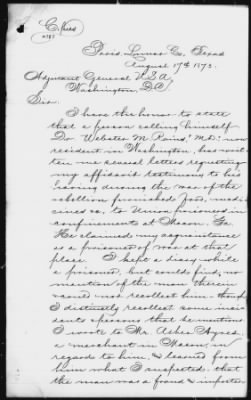 Paris, Lamar Co, Texas
August 17th 1873.
Adjutant General U.S.A.
Washington, D.C.
Sir.
I have the honor to state
that a person calling himself
Dr Webster M. Raines M.D. now
resident in Washington, has writ-
ten me several letters requesting
my affidavit testimony to his
having during the war of the
rebellion furnished food, medi-
cines &c, to Union prisoners in
confinement at Macon, Ga
He claimed my acquaintance
as a prisoner of war at that
place. I kept a diary while
a prisoner, but could find no
mention of the man therein
named nor recollect him though
I distinctly recollect some inci-
dents & persons that he mentions
I wrote to Mr. Asher Ayres
a merchant in Macon, in
regard to him, & learned from
him what I suspected that
the man was a fraud & impostor